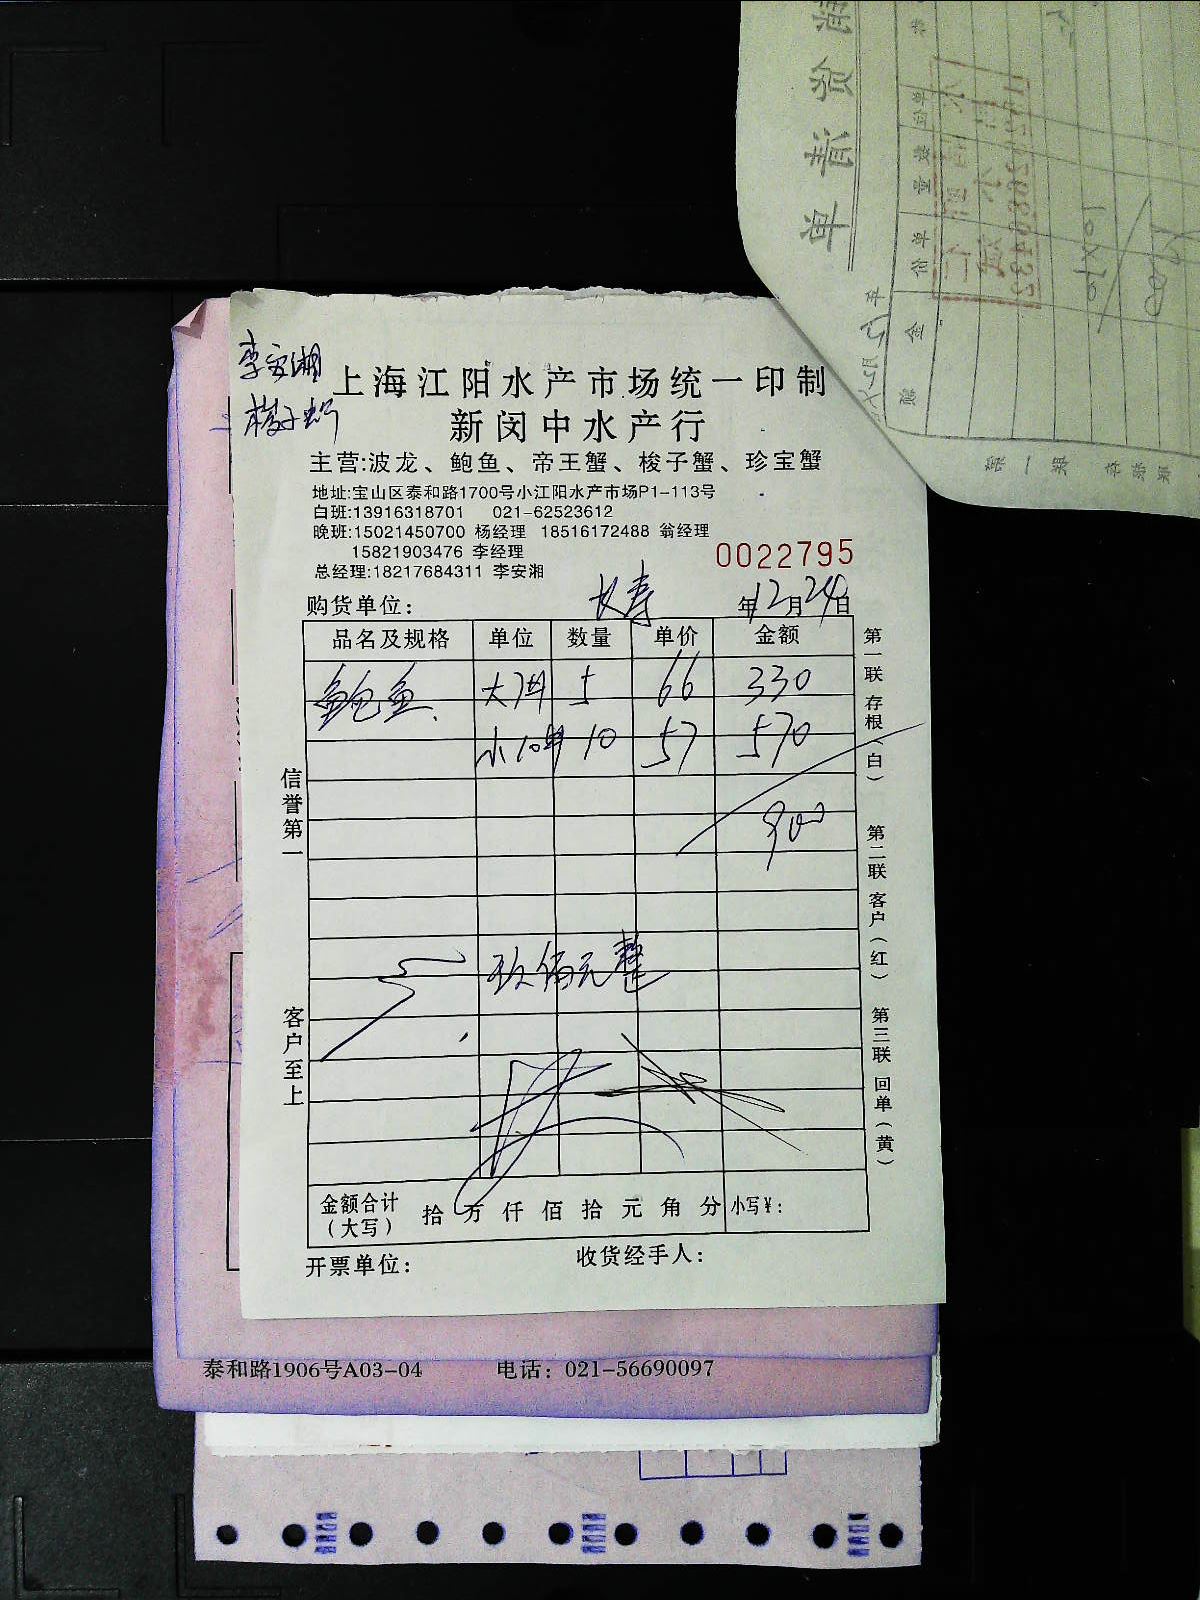 李安湘
梭子蟹
上海江阳水产市场统一印制
新闵中水产行
主营:波龙、鲍鱼、帝王蟹、梭子蟹、珍宝蟹
地址:宝山区泰和路1700号小江阳水产市场P1-113号
白班:13916318701 021-62523612
晚班:15021450700 杨经理 18516172488 翁经理
15821903476 李经理
总经理:18217684311 李安湘
0022795
购货单位: 长寿 年12月24日
品名及规格 单位 数量 单价 金额
鲍鱼 大 5 66 330
小10 10 57 570
900
玖佰元整
金额合计(大写) 拾 万 仟 佰 拾 元 角 分 小写¥:
开票单位: 收货经手人:
信誉第一
客户至上
第一联 存根(白)
第二联 客户(红)
第三联 回单(黄)
泰和路1906号A03-04 电话: 021-56690097